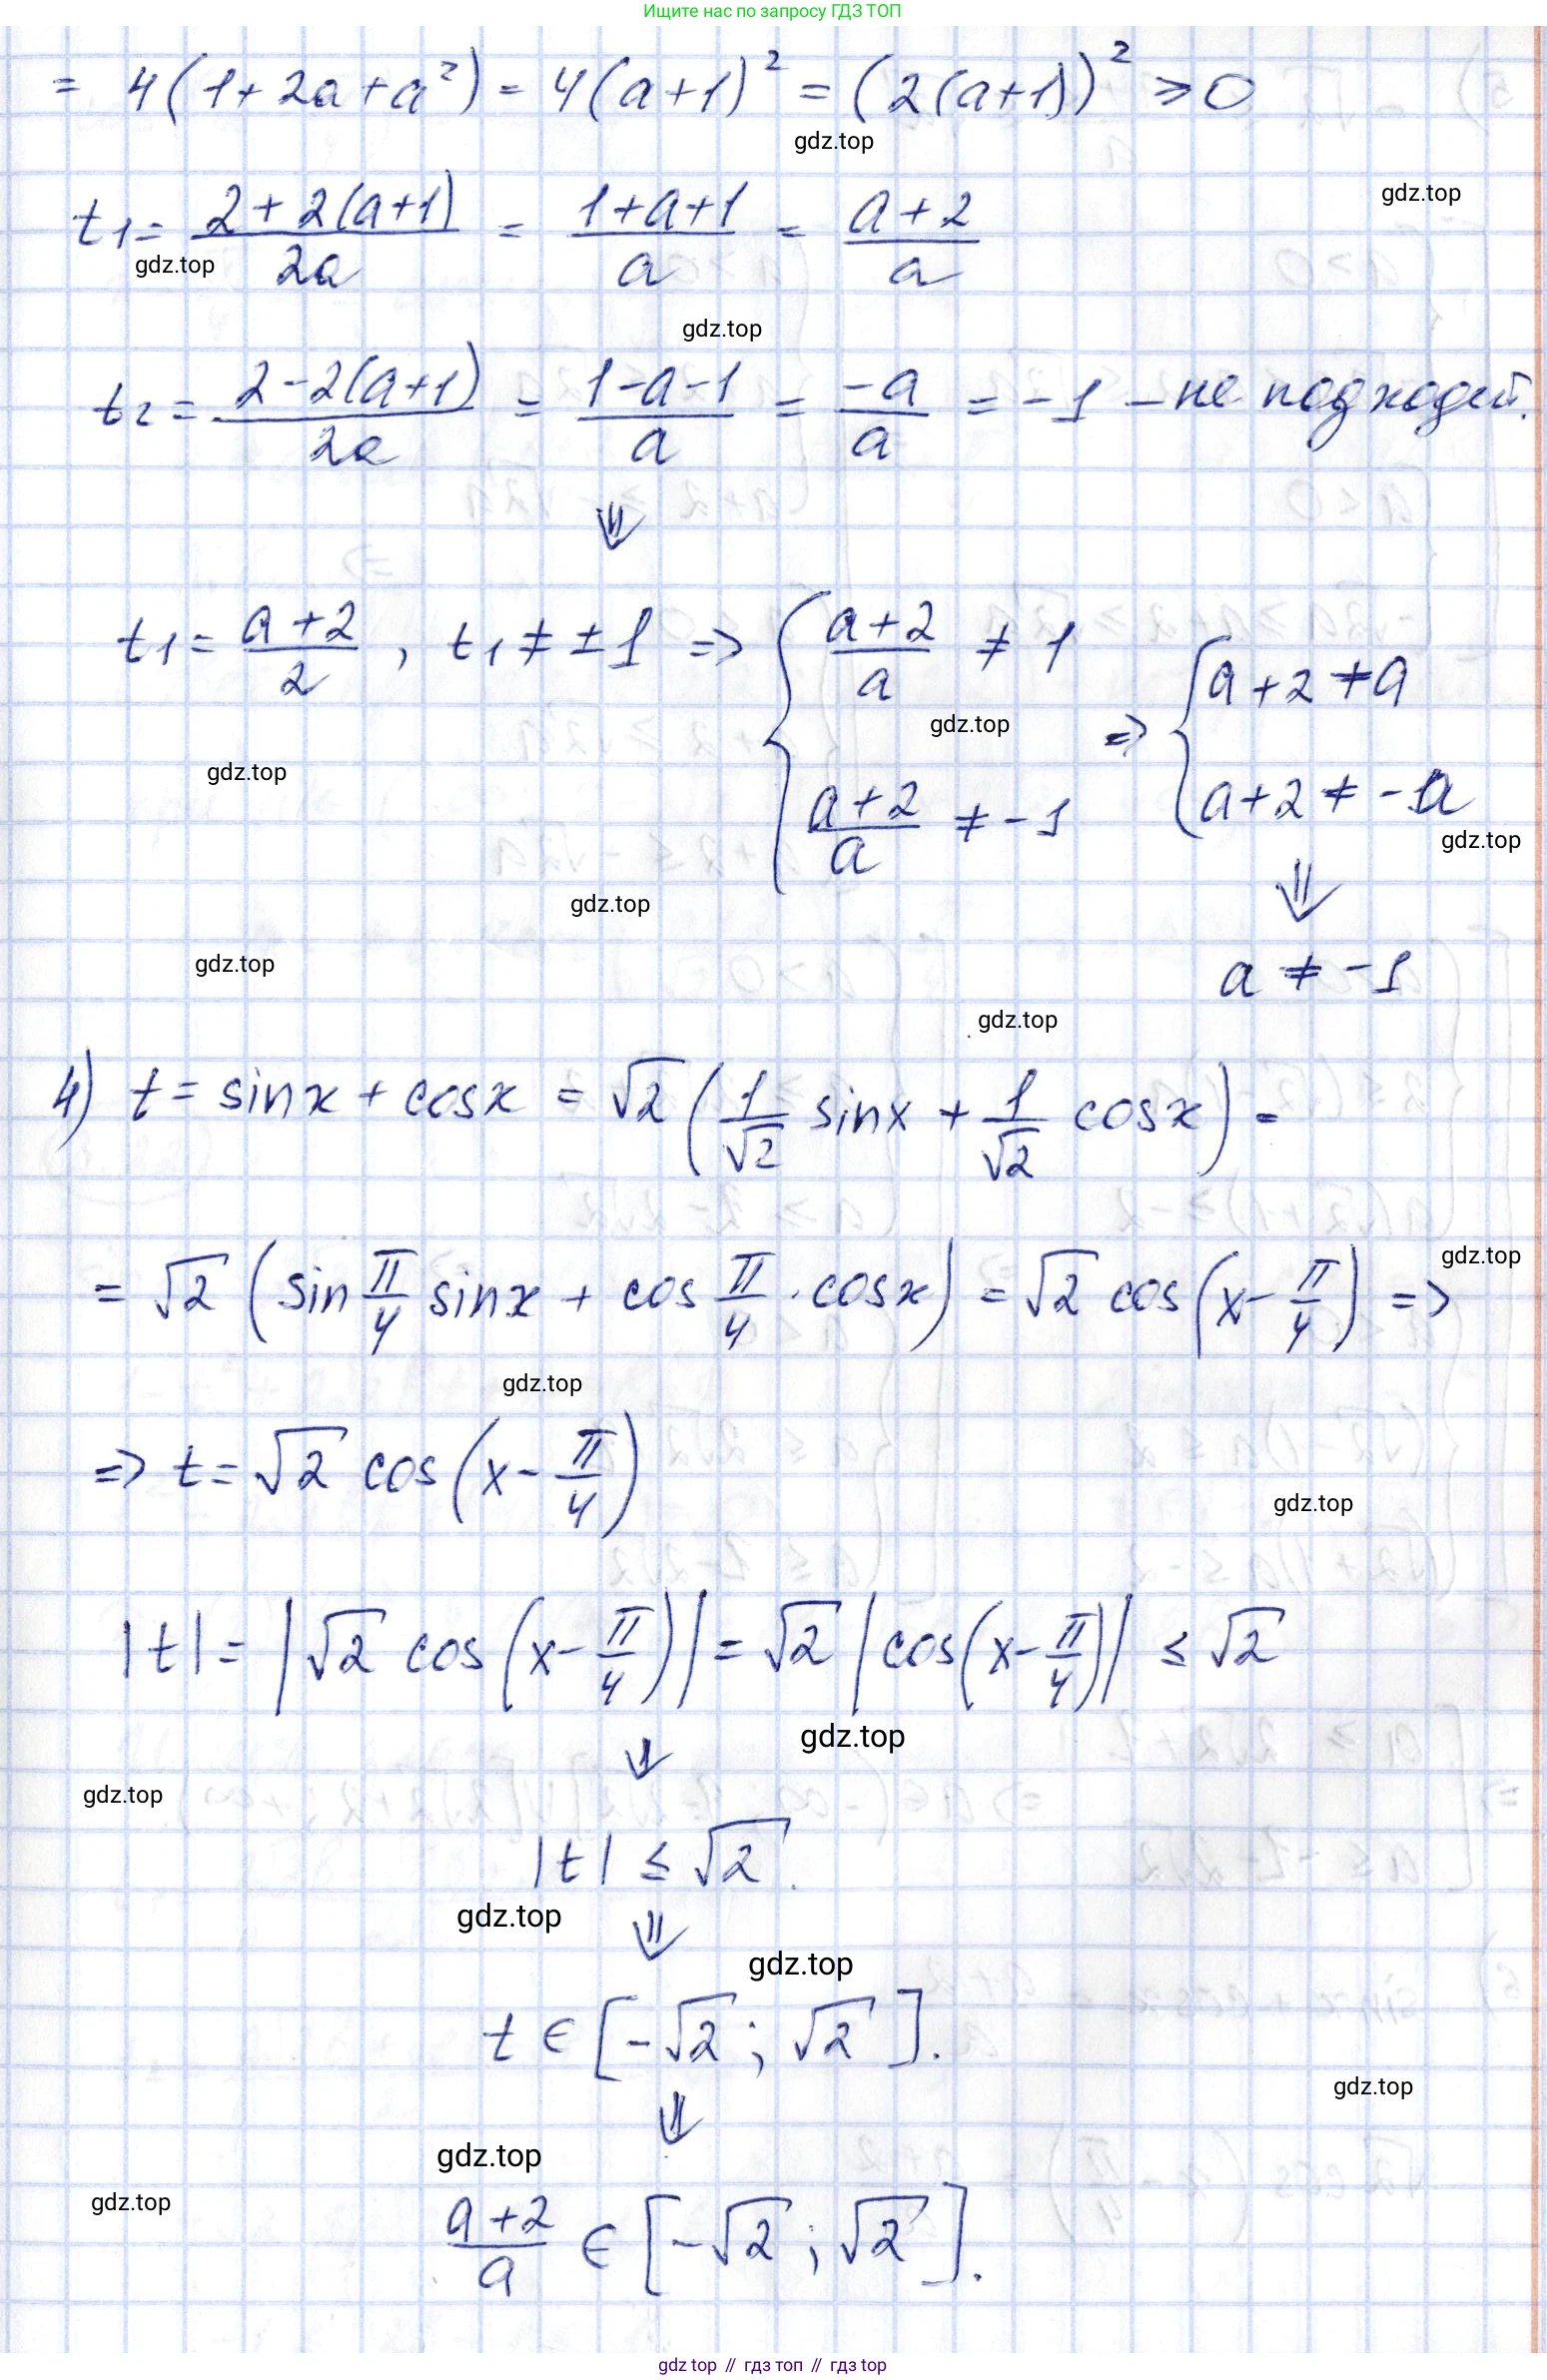 Ищите нас по запросу ГДЗ ТОП
= 4(1+2a+a²) = 4(a+1)² = (2(a+1))² ⩾ 0
gdz.top
gdz.top
t₁ = (2+2(a+1))/(2a) = (1+a+1)/a = (a+2)/a
gdz.top
gdz.top
t₂ = (2-2(a+1))/(2a) = (1-a-1)/a = (-a)/a = -1 – не подходит.
⇓
t₁ = (a+2)/2 , t₁ ≠ ±1 => { (a+2)/a ≠ 1 ; (a+2)/a ≠ -1 => { a+2 ≠ a ; a+2 ≠ -a
gdz.top
gdz.top
gdz.top
gdz.top
⇓
gdz.top
a ≠ -1
gdz.top
4) t = sinx + cosx = √2 (1/√2 sinx + 1/√2 cosx) =
= √2 (sin π/4 sinx + cos π/4 · cosx) = √2 cos(x - π/4) =>
gdz.top
gdz.top
=> t = √2 cos(x - π/4)
gdz.top
|t| = |√2 cos(x - π/4)| = √2 |cos(x - π/4)| ≤ √2
gdz.top
⇓
gdz.top
|t| ≤ √2.
gdz.top
⇓
gdz.top
t ∈ [-√2 ; √2].
gdz.top
⇓
gdz.top
gdz.top
(a+2)/a ∈ [-√2 ; √2].
gdz top // гдз топ // гдз top